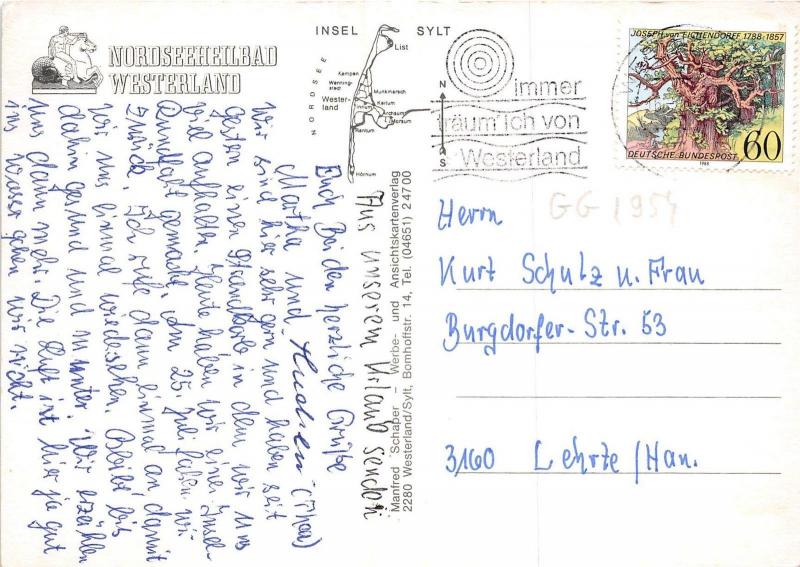 NORDSEEHEILBAD
WESTERLAND
INSEL SYLT
NORDSEE
List
Kampen
Wenning-
stedt
Munkmarsch
Wester-
land
Tinnum
Keitum
Archsum
Morsum
Rantum
Hörnum
N
S
immer
träum' ich von
Westerland
JOSEPH von EICHENDORFF 1788-1857
DEUTSCHE BUNDESPOST
60
1988
GG 1954
Aus unserem Urlaub senden
Euch Beiden herzliche Grüße
Martha und
Wir sind hier sehr gern und haben seit
gestern einen Strandkorb in dem wir uns
viel aufhalten. Heute haben wir eine Insel-
Rundfahrt gemacht. Am 25. Juli fahren wir
zurück. Ich rufe dann einmal an damit
wir uns einmal wiedersehen. Bleibt bis
dahin gesund und munter. Wir erzählen
uns dann mehr. Die Luft ist hier ja gut
ins Wasser gehen wir nicht.
Manfred Schaper – Werbe- und Ansichtskartenverlag
2280 Westerland/Sylt, Bomhoffstr. 14, Tel. (04651) 24700
Herrn
Kurt Schulz u. Frau
Burgdorfer-Str. 53
3160 Lehrte/Han.